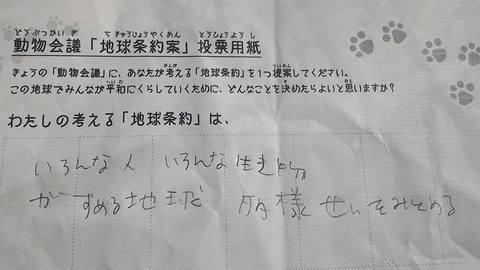 どうぶつかいぎ ちきゅうじょうやくあん とうひょうようし
動物会議「地球条約案」投票用紙
きょうの「動物会議」に、あなたが考える「地球条約」を1つ提案してください。
この地球でみんなが平和にくらしていくために、どんなことを決めたらよいと思いますか?
わたしの考える「地球条約」は、
いろんな人 いろんな生き物
が すめる地球 多様せいをみとめる